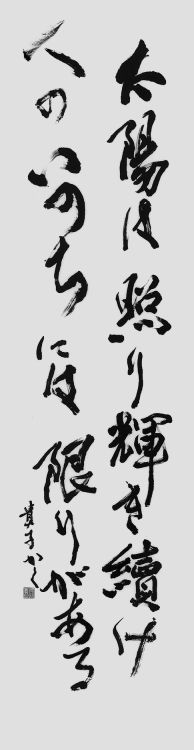 太陽は照り輝き續け
人のいのちには限りがある